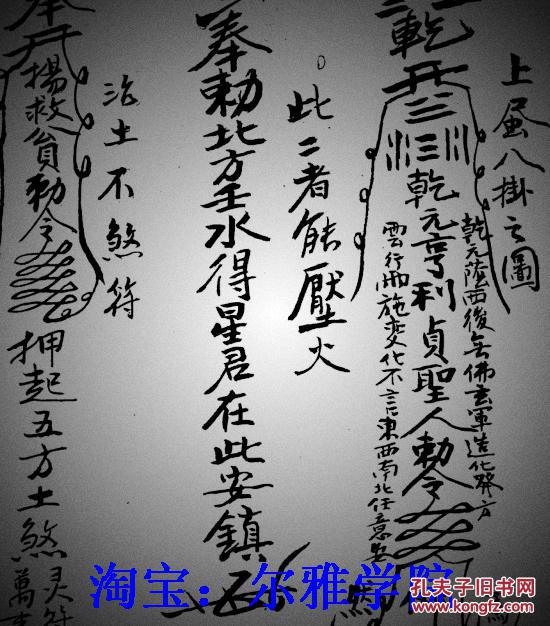 上蜃八掛之圖
乾元蔭西後無佛玄軍造化發方
乾元亨利貞聖人勅令
雲行雨施變化不言東西南北任意
此二者能壓火
奉勅北方壬水得星君在此安鎮
治土不煞符
楊救貧勅令
押起五方土煞灵符
萬
淘宝：尔雅学院
孔夫子旧书网
www.kongfz.com